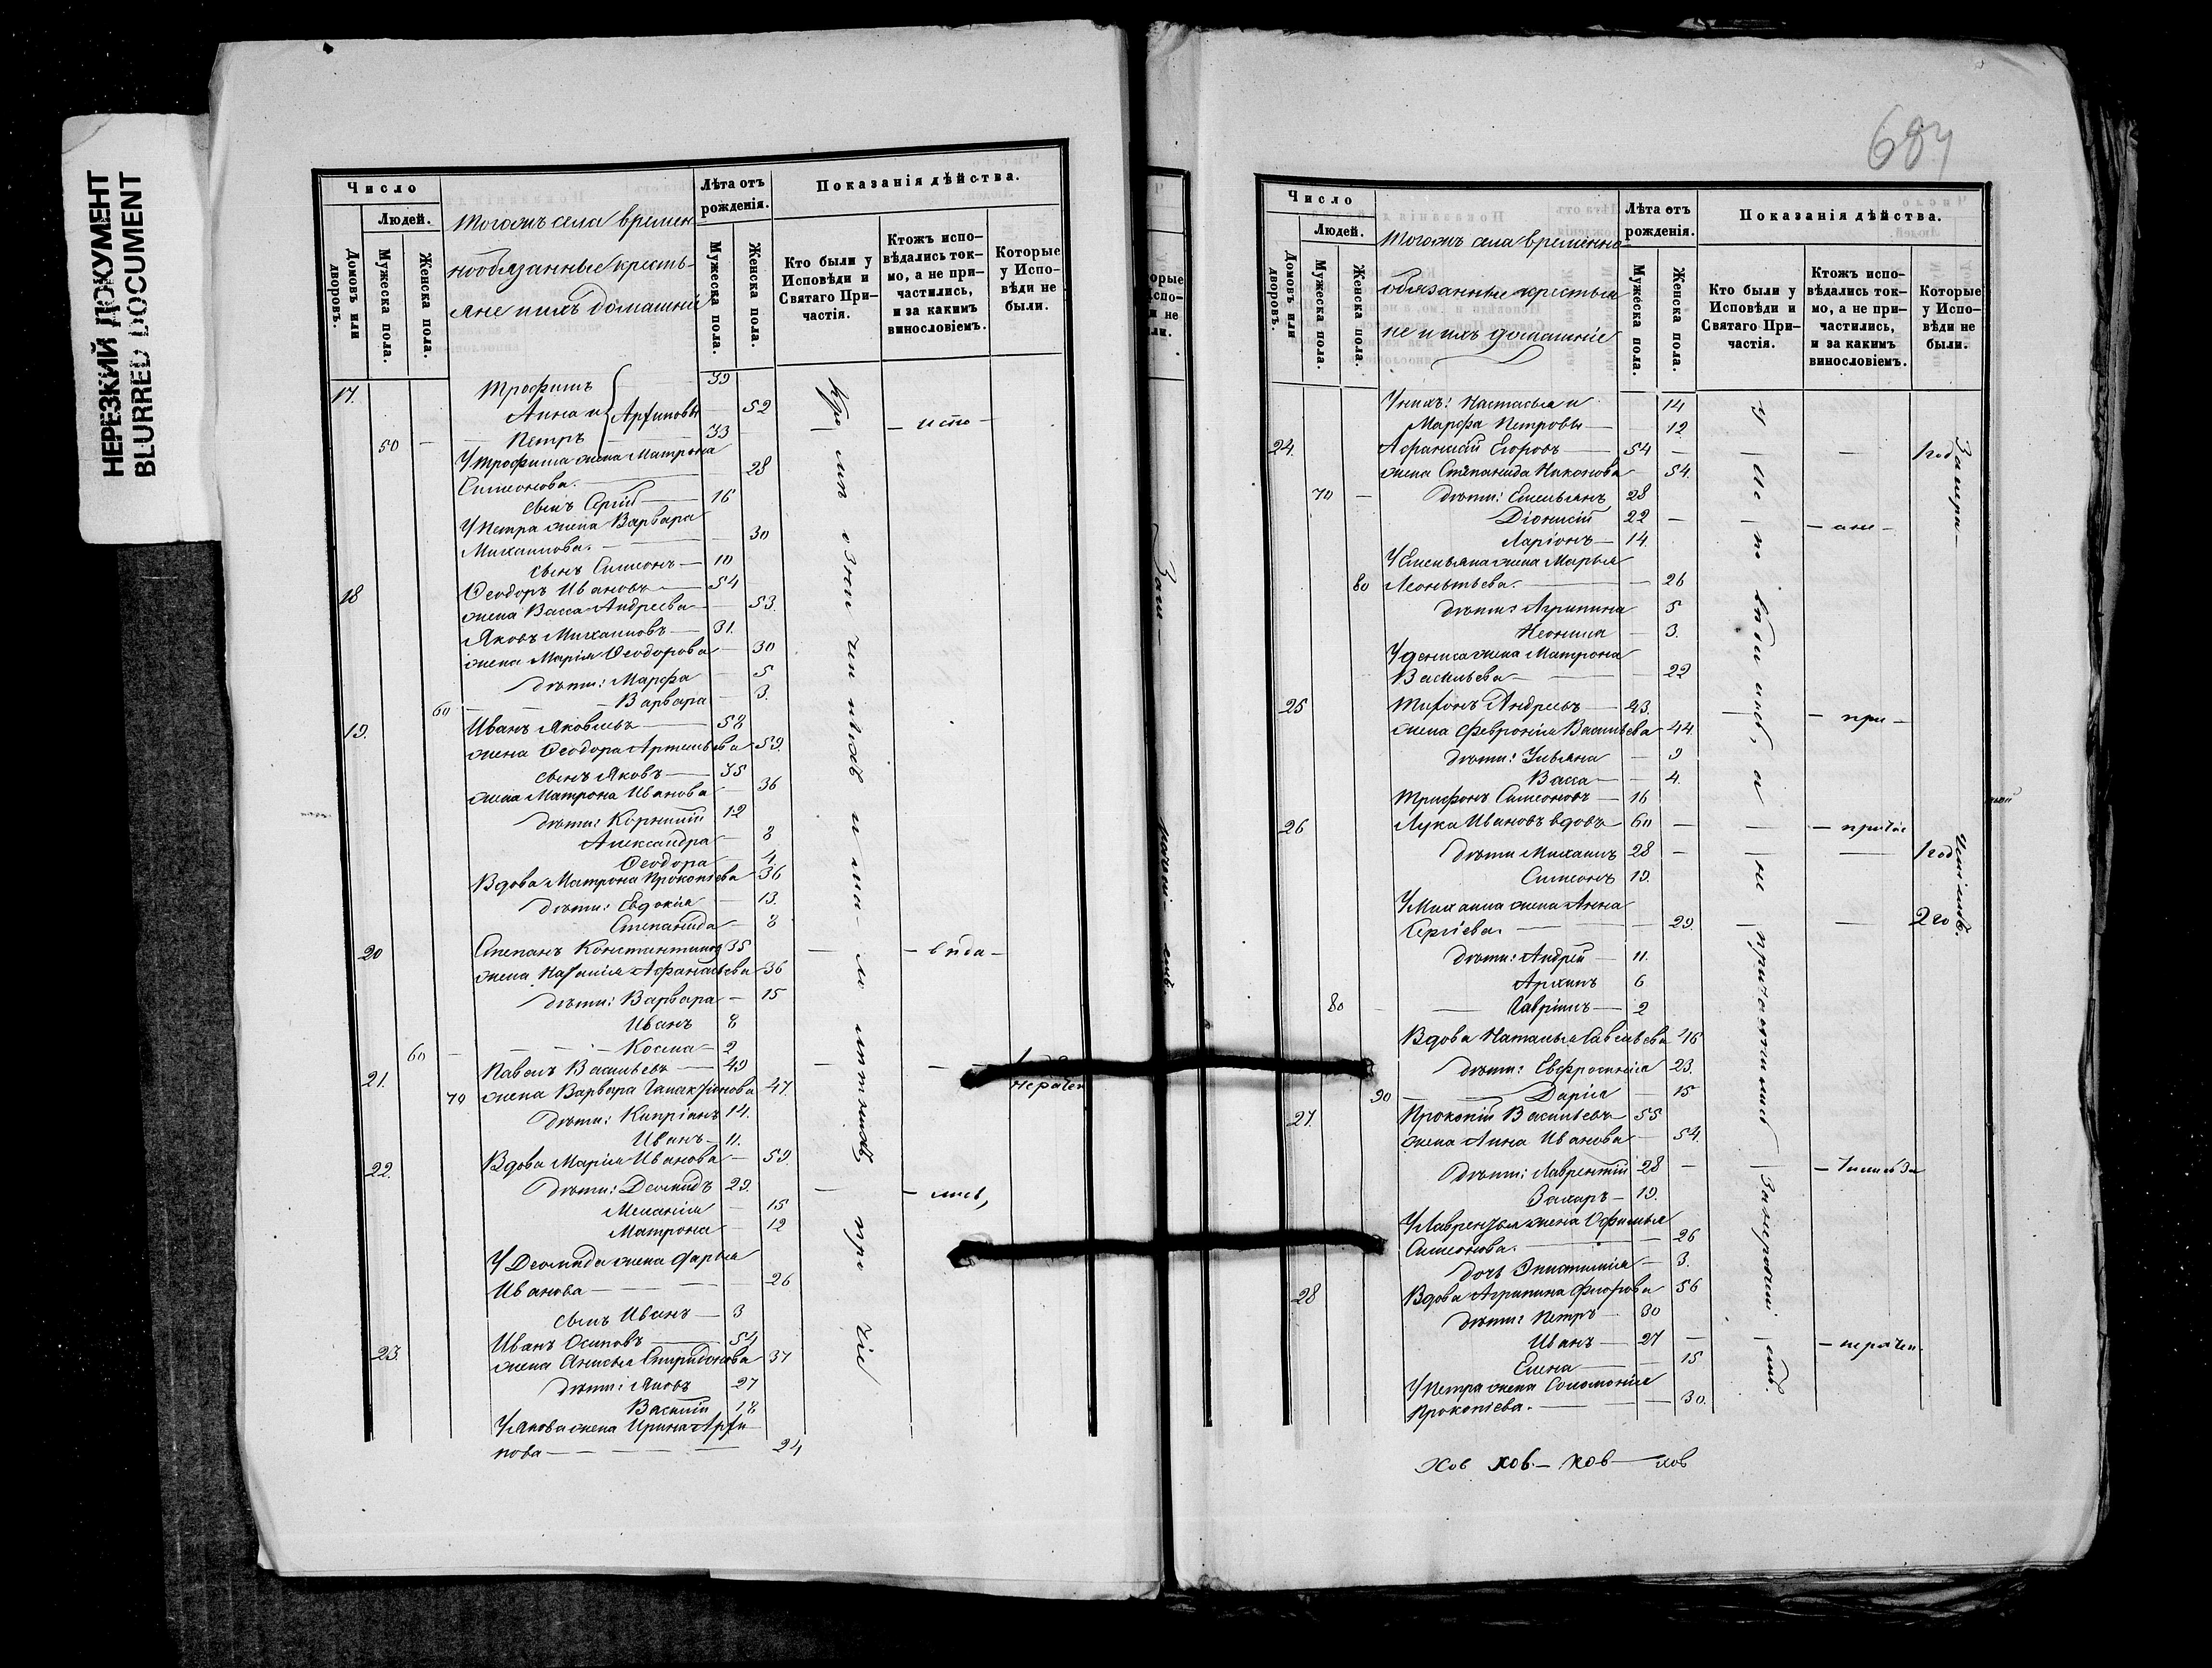 НЕРЕЗКИЙ ДОКУМЕНТ
BLURRED DOCUMENT
Число
Людей.
Домовъ или дворовъ.
Мужеска пола.
Женска пола.
Тогожъ села времен
нообязанные кресть-
яне и ихъ домашніе
Лѣта отъ рожденія.
Мужеска пола.
Женска пола.
Показанія дѣйства.
Кто были у Исповѣди и Святаго При-частія.
Ктожъ испо-вѣдались ток-мо, а не при-частились, и за какимъ винословіемъ.
Которые у Испо-вѣди не были.
17. Трофимъ 39
Анна и Архиповы 52
50 — Петръ 33
У Трофима жена Матрона
Симеонова. 28
сынъ Сергій 16
У Петра жена Варвара
Михаилова. 30
сынъ Симеонъ 10
18 Ѳеодоръ Ивановъ 54
жена Васса Андреева 53.
Яковъ Михаиловъ 31.
жена Марія Ѳеодорова 30
дѣти: Марфа 5
60 Варвара 3.
19. Иванъ Яковлевъ 58
жена Ѳеодора Артемьева 59.
сынъ Яковъ 35
жена Матрона Иванова 36
дѣти: Корнилій 12
Александра 8
Ѳеодора 4.
Вдова Матрона Прокопіева 36
дѣти: Евдокія 13.
Степанида 8
20 Степанъ Константиновъ 35
жена Наталія Афанасьева 36
дѣти: Варвара 15
Иванъ 8
60 Косма 2
21. Павелъ Васильевъ 49
70 жена Варвара 47.
дѣти: Кипріанъ 14.
Иванъ 11.
22. Вдова Марія Иванова 59.
дѣти: Деомидъ 29.
Меланія 15
Матрона 12
У Деомида жена Дарья
Иванова 26
сынъ Иванъ 3
23. Иванъ Осиповъ 54
жена Анисья Спиридонова 37
дѣти: Яковъ 27
Василій 18
У Якова жена Ирина Архи
пова 24
— испо —
— вѣда —
— лись,
нерачен
684
Число
Людей.
Домовъ или дворовъ.
Мужеска пола.
Женска пола.
Тогожъ села временно
обязанные крестья
не и ихъ домашніе
Лѣта отъ рожденія.
Мужеска пола.
Женска пола.
Показанія дѣйства.
Кто были у Исповѣди и Святаго При-частія.
Ктожъ испо-вѣдались ток-мо, а не при-частились, и за какимъ винословіемъ.
Которые у Испо-вѣди не были.
У нихъ: Настасья и 14
Марфа Петровы 12
24. Афанасій Егоровъ 54 1 год
жена Степанида Никонова 54.
70 — дѣти: Емельянъ 28
Діонисій 22 — а не —
Ларіонъ 14.
У Емельяна жена Марья
80 Леонтьева. 26
дѣти: Агрипина 5
Неонила 3.
У Дениса жена Матрона
Васильева 22
25 Тихонъ Андреевъ 43. — при —
жена Февронія Васильева 44.
дѣти: Ульяна 9
Васса 4.
Трифонъ Симеоновъ 16
26 Лука Ивановъ вдовъ 60 — причас
дѣти Михаилъ 28 1 год
Симеонъ 19.
У Михаила жена Анна
Сергіева. 29. 2 го
дѣти: Андрей 11.
Архипъ 6
80 Гавріилъ 2
Вдова Наталья Савельева 46
дѣти: Евфросинія 23.
90 Дарія 15
27. Прокопій Васильевъ 55
жена Анна Иванова 54.
дѣти: Лаврентій 28 — тились За
Захаръ 19.
У Лаврентья жена Офимья
Симеонова. 26
дочь Эпистимія 3.
28 Вдова Агрипина Флорова 56
дѣти: Петръ 30
Иванъ 27 — нерачен.
Елена 15
У Петра жена Соломонія
Прокопіева. 30.